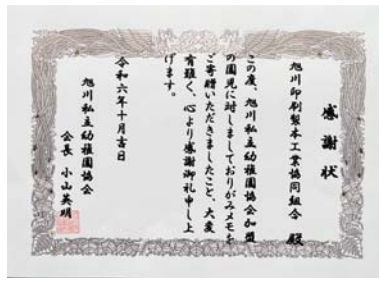 感謝状
旭川印刷製本工業協同組合 殿
この度、旭川私立幼稚園協会加盟
の園児に対しましておりがみメモを
ご寄贈いただきましたこと、大変
有難く、心より感謝御礼申し上
げます。
令和六年十月吉日
旭川私立幼稚園協会
会長 小山英明